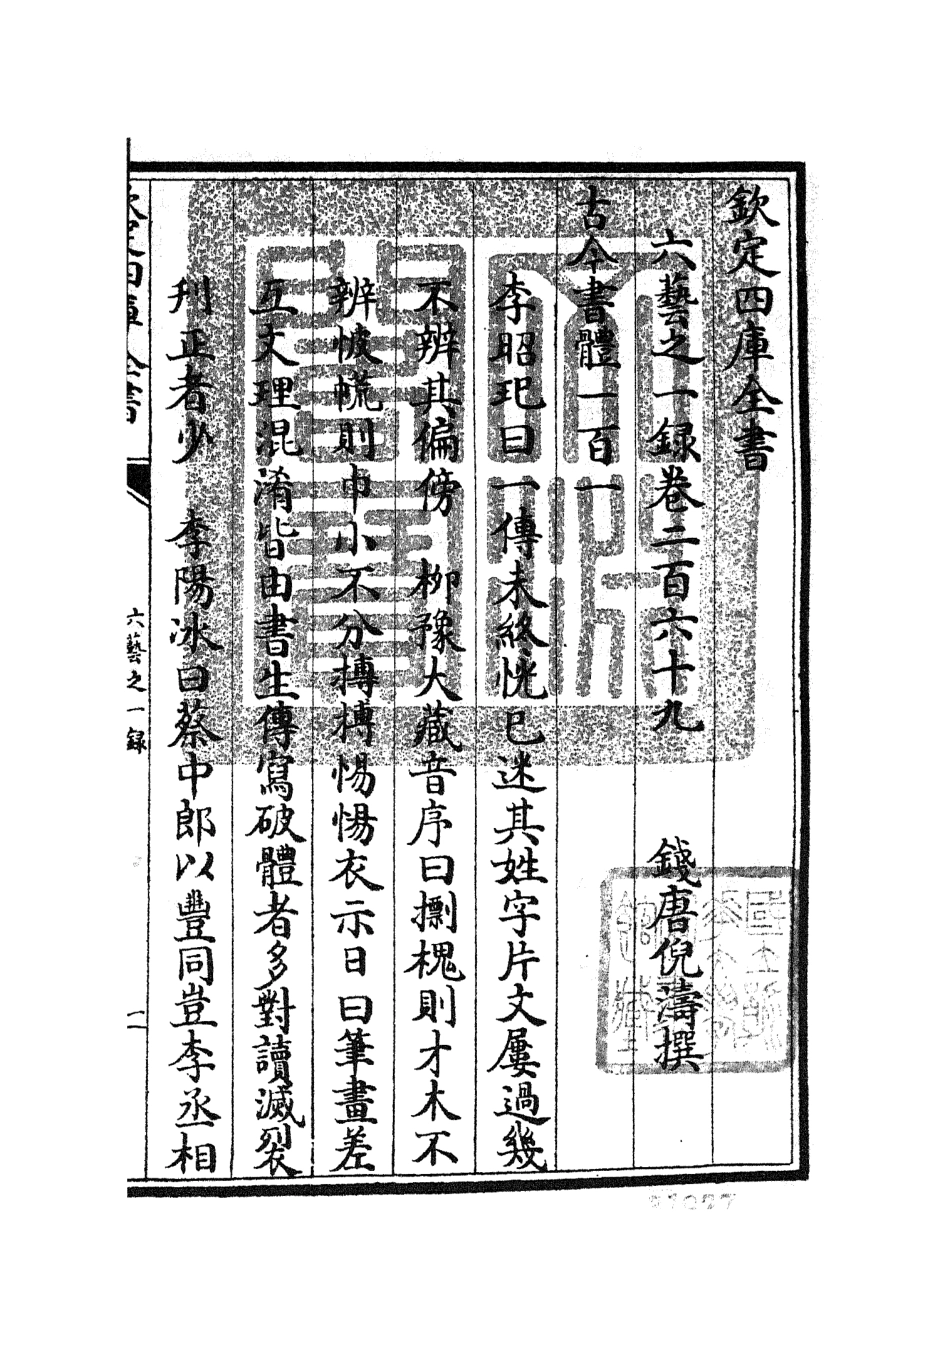 欽定四庫全書
六藝之一録卷二百六十九
錢唐倪濤撰
古今書體一百一
李昭玘曰一傳未終恍已迷其姓字片文屢過幾
不辨其偏傍　柳豫大藏音序曰摽槐則才木不
辨帔幌則巾小不分摶搏惕惕衣示日曰筆畫差
互文理混淆皆由書生傳寫破體者多對讀滅裂
刋正者少　李陽冰曰蔡中郎以豐同豈李丞相
六藝之一録